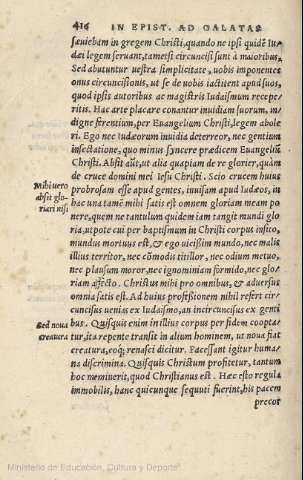 416 IN EPIST. AD GALATAS
sæuiebam in gregem Christi, quando ne ipsi quidē Iu-
dæi legem seruant, tametsi circuncisi sunt à maioribus.
Sed abutuntur uestra simplicitate, uobis imponentes
onus circuncisionis, ut se de uobis iactient apud suos,
quod ipsis autoribus ac magistris Iudaismum recepe-
ritis. Hac arte placare conantur inuidiam suorum, in-
digne ferentium, per Euangelium Christi, legem abole
ri. Ego nec Iudæorum inuidia deterreor, nec gentium
insectatione, quo minus syncere prædicem Euangeliū
Christi. Absit aūt, ut alia quapiam de re glorier, quàm
de cruce domini mei Iesu Christi. Scio crucem huius
Mihi uero
absit glo-
riari nisi
probrosam esse apud gentes, inuisam apud Iudæos, in
hac una tamē mihi satis est omnem gloriam meam po
nere, quem ne tantulum quidem iam tangit mundi glo
ria, utpote cui per baptismum in Christi corpus insito,
mundus mortuus est, & ego uicissim mundo, nec malis
illius territor, nec cōmodis titillor, nec odium metuo,
nec plausum moror, nec ignominiam formido, nec glo-
riam affecto. Christus mihi pro omnibus, & aduersus
omnia satis est. Ad huius professionem nihil refert cir-
cuncisus uenias ex Iudaismo, an incircuncisus ex genti
Sed noua
creatura
bus. Quisquis enim in illius corpus per fidem coopta-
tur, ita repente transit in alium hominem, ut noua fiat
creatura, eoq; renasci dicitur. Facessant igitur humana
na discrimina. Quisquis Christum profitetur, tantum
hoc meminerit, quod Christianus est. Hæc esto regula
immobilis, hanc quicunque sequuti fuerint, his pacem
precor
Ministerio de Educación, Cultura y Deporte